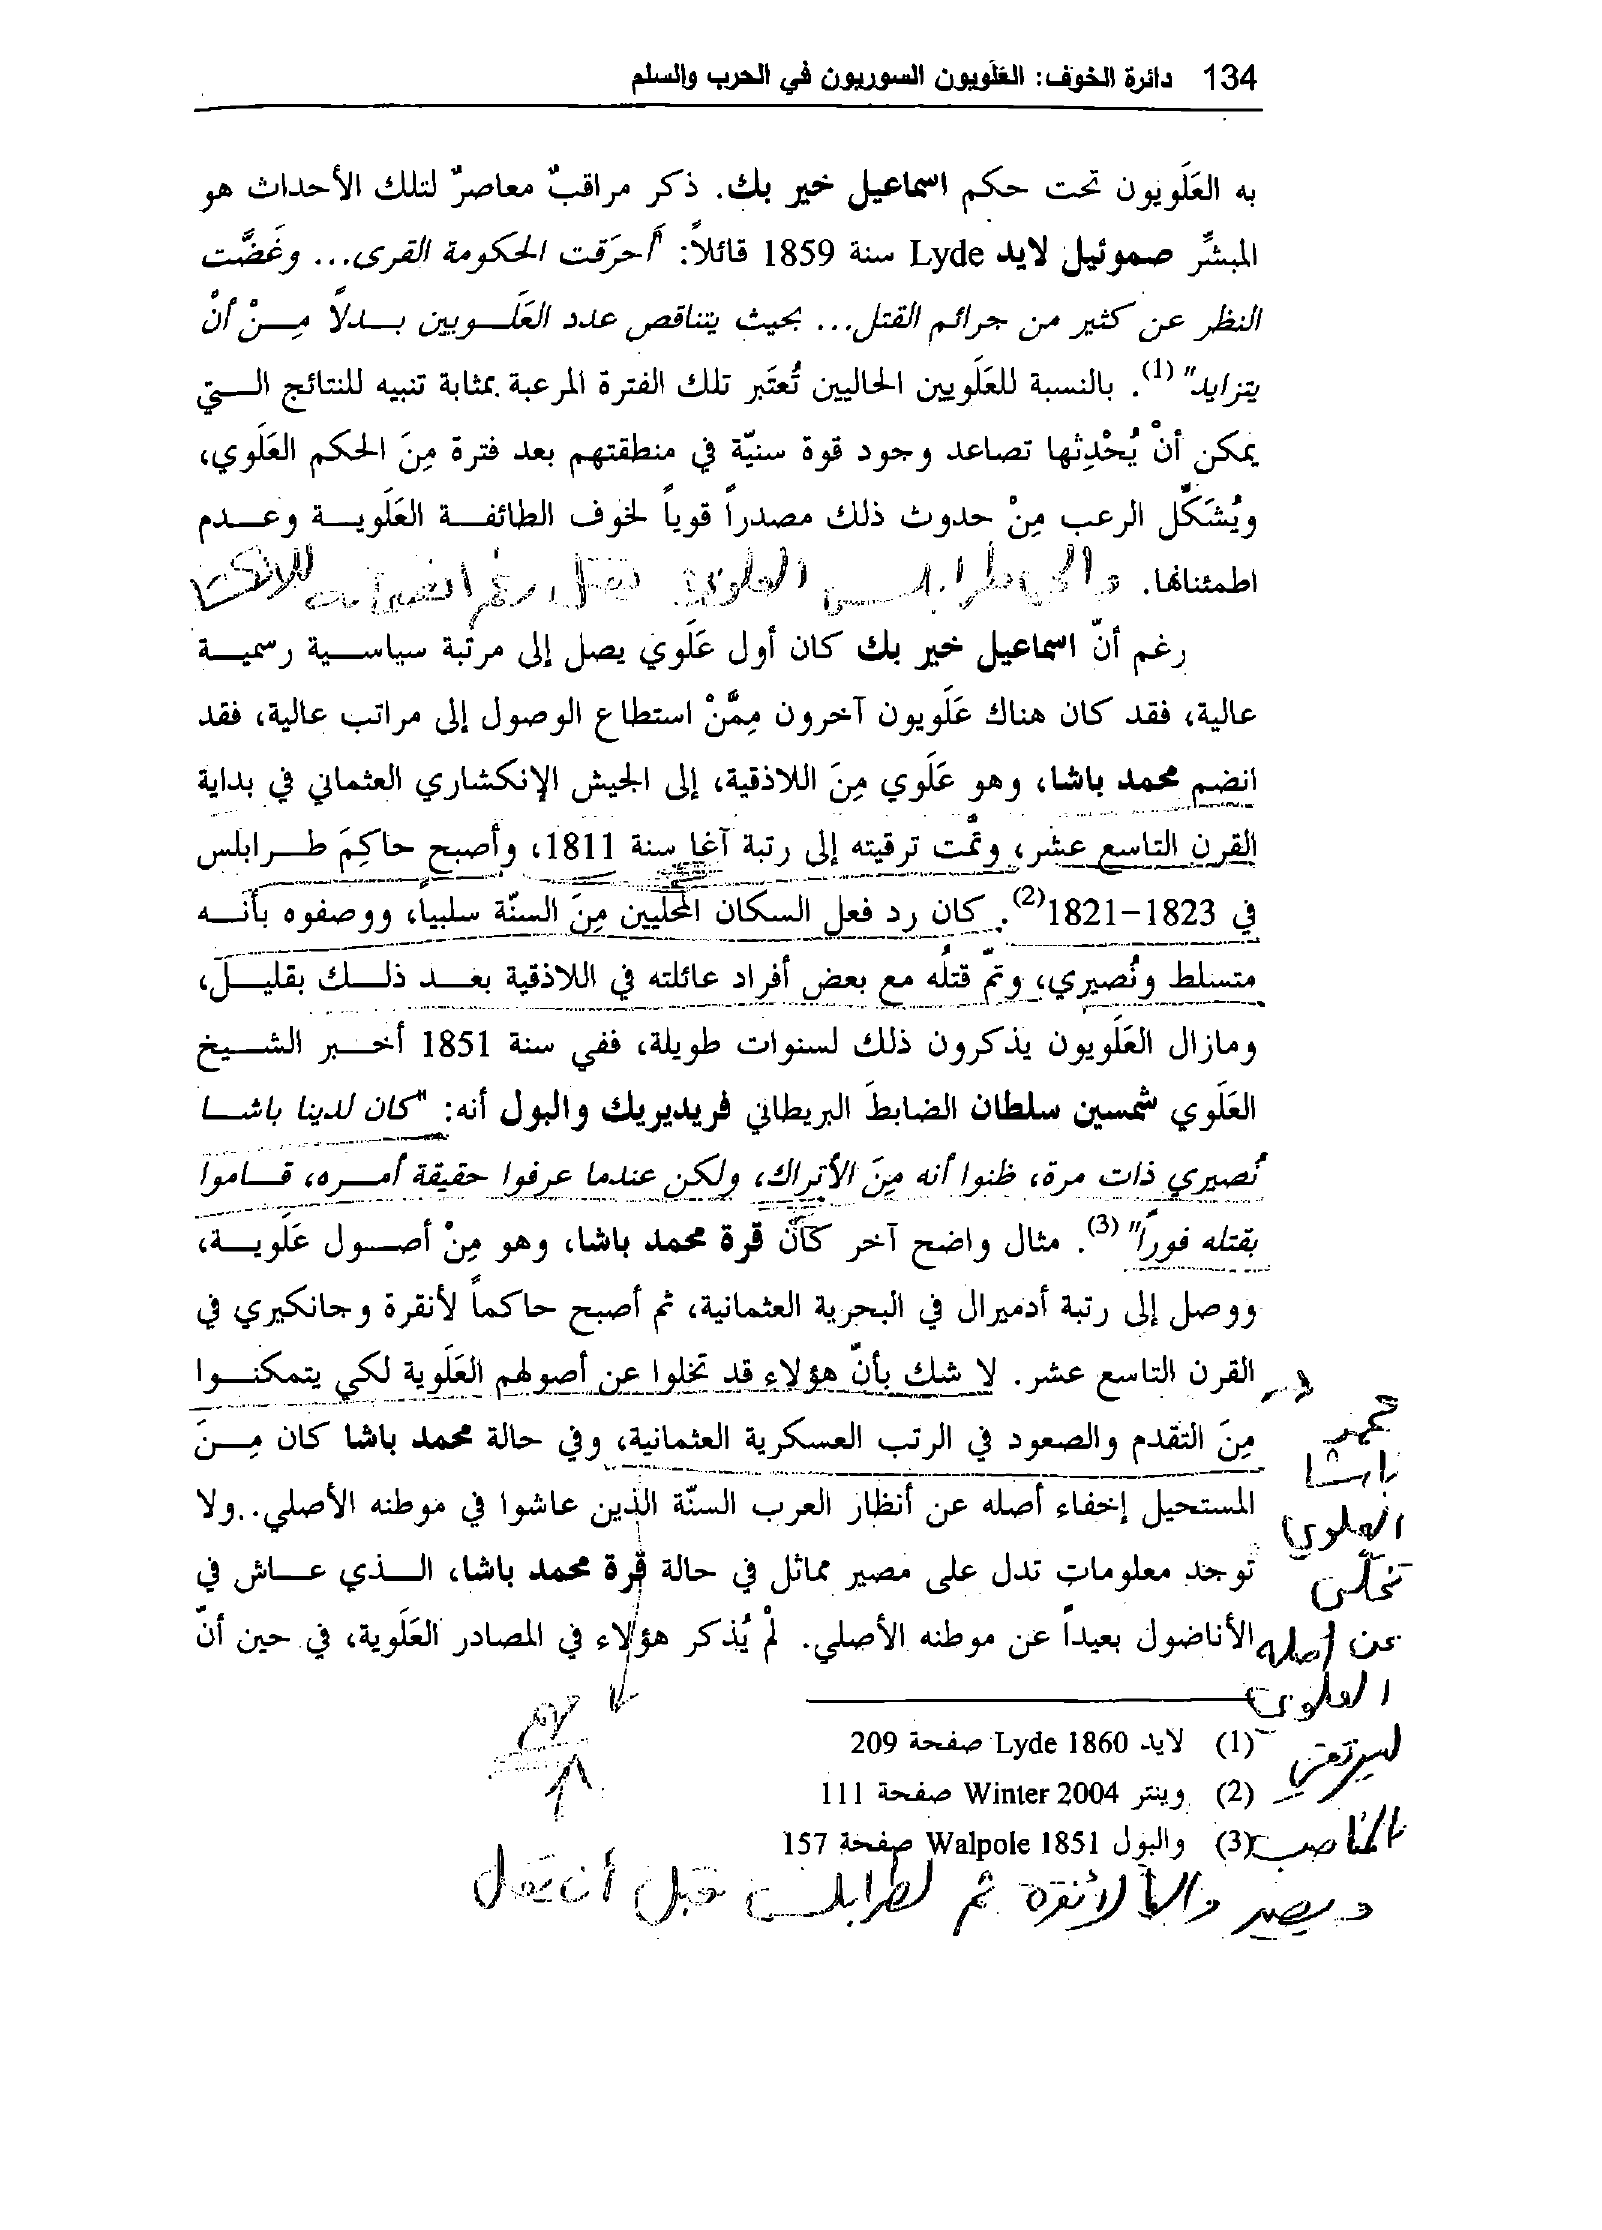 134 دائرة الخوف: العَلَويون السوريون في الحرب والسلم
به العَلَويون تحت حكم اسماعيل خير بك. ذكر مراقبٌ معاصرٌ لتلك الأحداث هو
المبشِّر صموئيل لايد Lyde سنة 1859 قائلاً: "أحرَقت الحكومة القرى... وغَضَّت
النظر عن كثير من جرائم القتل... بحيث يتناقص عدد العَلَويين بدلاً مِنْ أنْ
يتزايد"(1). بالنسبة للعَلَويين الحاليين تُعتَبر تلك الفترة المرعبة بمثابة تنبيه للنتائج التي
يمكن أنْ يُحْدِثها تصاعد وجود قوة سنيّة في منطقتهم بعد فترة مِنَ الحكم العَلَوي،
ويُشَكِّل الرعب مِنْ حدوث ذلك مصدراً قوياً لخوف الطائفة العَلَوية وعدم
اطمئنانها. والي طرابلس العلوي قتل رغم انضمامه للانكشا
رغم أنّ اسماعيل خير بك كان أول عَلَوي يصل إلى مرتبة سياسية رسمية
عالية، فقد كان هناك عَلَويون آخرون مِمَّنْ استطاع الوصول إلى مراتب عالية، فقد
انضم محمد باشا، وهو عَلَوي مِنَ اللاذقية، إلى الجيش الإنكشاري العثماني في بداية
القرن التاسع عشر، وتمّت ترقيته إلى رتبة آغا سنة 1811، وأصبح حاكِمَ طرابلس
في 1823-1821(2). كان رد فعل السكان المحليين مِنَ السنّة سلبياً، ووصفوه بأنه
متسلط ونُصيري، وتمّ قتلُه مع بعض أفراد عائلته في اللاذقية بعد ذلك بقليل،
ومازال العَلَويون يذكرون ذلك لسنوات طويلة، ففي سنة 1851 أخبر الشيخ
العَلَوي شمسين سلطان الضابطَ البريطاني فريديريك والبول أنه: "كان لدينا باشا
نُصيري ذات مرة، ظنوا أنه مِنَ الأتراك، ولكن عندما عرفوا حقيقة أمره، قاموا
بقتله فوراً"(3). مثال واضح آخر كانَ قرة محمد باشا، وهو مِنْ أصول عَلَوية،
ووصل إلى رتبة أدميرال في البحرية العثمانية، ثم أصبح حاكماً لأنقرة وجانكيري في
القرن التاسع عشر. لا شك بأنّ هؤلاء قد تخلوا عن أصولهم العَلَوية لكي يتمكنوا
مِنَ التقدم والصعود في الرتب العسكرية العثمانية، وفي حالة محمد باشا كان مِنَ
المستحيل إخفاء أصله عن أنظار العرب السنّة الذين عاشوا في موطنه الأصلي..ولا
توجد معلومات تدل على مصير مماثل في حالة قرة محمد باشا، الذي عاش في
الأناضول بعيداً عن موطنه الأصلي. لمْ يُذكر هؤلاء في المصادر العَلَوية، في حين أنّ
محمد
باشا
العلوي
تخلّى
عن أصله
العلوي
ليرتقي
بالمناصب
ويصير والياً لأنقرة ثم لطرابلس قبل أن يقتل
(1) لايد Lyde 1860 صفحة 209
(2) وينتر Winter 2004 صفحة 111
(3) والبول Walpole 1851 صفحة 157